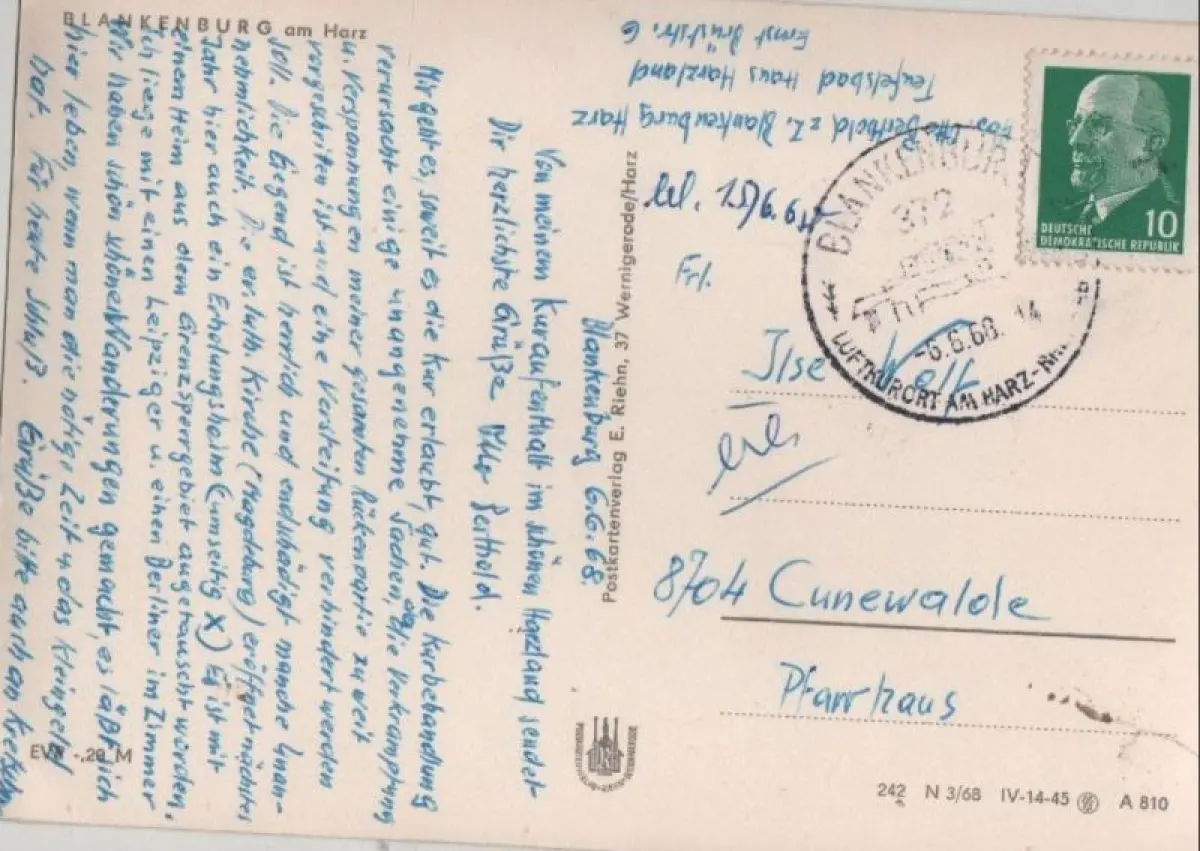 BLANKENBURG am Harz
Blankenburg 6.6.68.
Von meinem Kuraufenthalt im schönen Harzland sendet
Dir herzlichste Grüße Uller Berthold.
Mir geht es, soweit es die Kur erlaubt, gut. Die Kurbehandlung
verursacht einige unangenehme Sachen, die Verkrampfung
u. Verspannungen meiner gesamten Rükenpartie zu weit
vorgeschriten ist und eine Versteifung verhindert werden
soll. Die Gegend ist herrlich und endschädigt manche Unan-
nehmlichkeit. Die ev. luth. Kirche (Magdeburg) eröffget nächstes
Jahr hier auch ein Erholungsheim (umseitig X) Es ist mit
einem Heim aus dem Grenzsperrgebiet augetauscht worden.
Ich liege mit einen Leipziger u. einen Berliner im Zimmer
Wir haben schön schöne Wanderungen gemacht, es läßt sich
hier leben, wenn man die nötige Zeit u das kleingeld
hat. Für heute Schluß. Grüße bitte auch an
EVP -,20 M
Postkartenverlag E. Riehn, 37 Wernigerode/Harz
Abs. Otto Berthold z. Z. Blankenburg Harz
Teufelsbad Haus Harzland
Ernst Brüststr. 6
15/6.
BLANKENBURG
372
-6.6.68. 14
LUFTKURORT AM HARZ
10
DEUTSCHE
DEMOKRATISCHE REPUBLIK
Frl.
Ilse Wolf
8704 Cunewalde
Pfarrhaus
242 N 3/68 IV-14-45 A 810